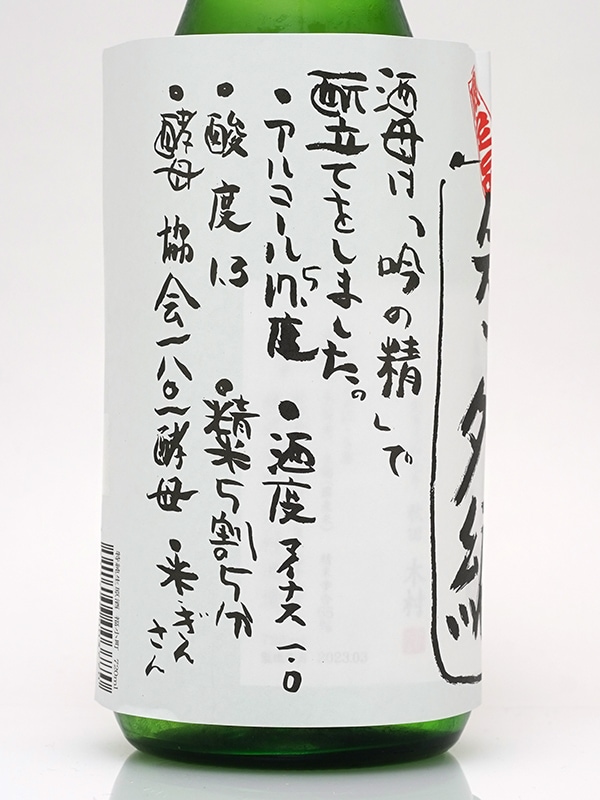 酒母は「吟の精」で
酛立てをしました。
・アルコール17.5度 ・酒度マイナス一.0
・酸度1.3 ・精米5割の5分
・酵母 協会一八〇一酵母 ・米ぎんさん
福小町 720ml